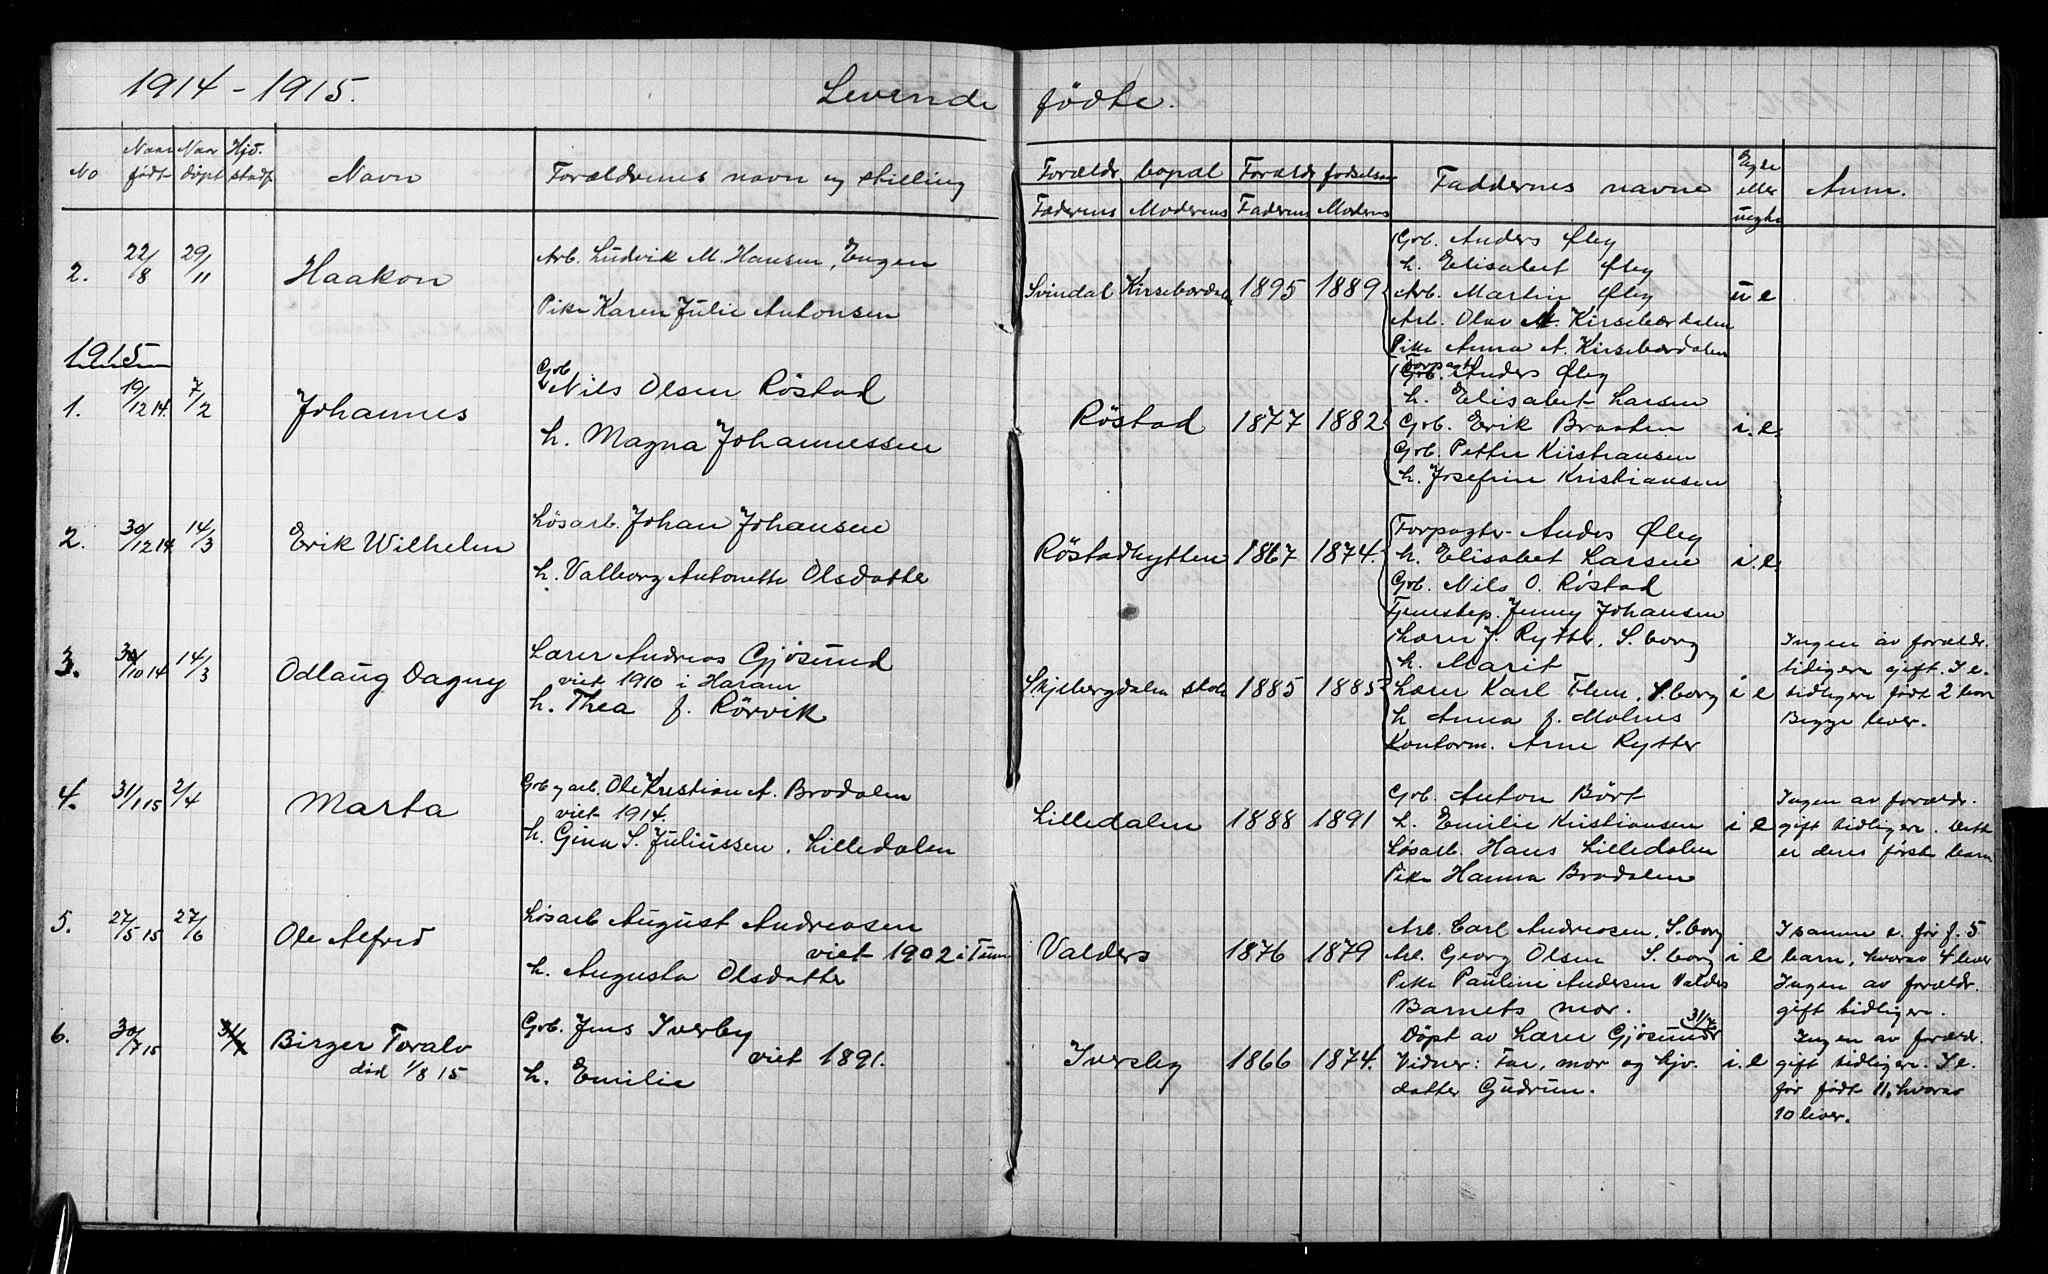 1914 - 1915. Levende fødte.
No Naar født Naar døpt Hjd. stadf. Navn Forældrenes navn og stilling Forældr. bopæl Forældr. fødselsaar Faddernes navne Egte eller uegte Anm.
Faderens Moderens Faderens Moderens
2. 22/8 29/11 Haakon
Arb. Ludvik M. Hansen, Engen
Pike Karen Julie Antonsen
Svindal Kirsebærdalen 1895 1889
Grb. Anders Øby
h. Elisabet Øby
Arb. Martin Øby
Arb. Olav M. Kirsebærdalen
Pike Anna A. Kirsebærdalen
u e
1915
1. 19/12 14. 7/2 Johannes
Grb. Nils Olsen Röstad
h. Magna Johannessen
Röstad 1877 1882
Forpagter Grb. Anders Øby
h. Elisabet Larsen
Grb. Erik Braaten
Grb. Petter Kirstiansen
h. Josefine Kristiansen
i. e.
2. 30/12 14. 14/3 Erik Wilhelm
Løsarb. Johan Johansen
h. Valborg Antonette Olsdatter
Röstadhytten 1867 1874.
Forpagter Andes Øby
h. Elisabet Larsen
Grb. Nils O. Röstad
Tjenestep. Jenny Johansen
i. e.
3. 30/10 14 14/3 Odlaug Dagny
Lærer Andreas Gjøsund
viet 1910 i Haram
h. Thea f. Rörvik
Skjebergdalen skole 1885 1885
Lærer J. Rytter, S.borg
h. Marit
Lærer Karl Flem, S.borg
h Anna f. Molnes
Kontorm. Arne Rytter
i e
Ingen av forældr.
tidigere gift. I e.
tidligere født 2 barn
Begge lever.
4. 31/1 15 2/4 Marta
Grb og arb. Ole Kristian A. Brodalen
viet 1914.
h. Gina S. Juliussen, Lilledalen
Lilledalen 1888 1891
Grb. Anton Bört
h. Emilie Kristiansen
Løsarb. Hans Lilledalen
Pike Hanna Brodalen
i e
Ingen av forældr.
gift tidligere. Dette
er deres første barn
5. 27/5 15 27/6 Ole Alfred
Løsarb August Andreasen
viet 1902 i Tune
h. Augusta Olsdatter
Valders 1876 1879
Arb. Carl Andreasen, S.borg
Arb. Georg Olsen S.borg
Pike Pauline Andersen Valders
Barnets mor.
i e
I samme e. før f. 5
barn, hvorav 4 lever
Ingen av forældr.
gift tidligere.
6. 30/7 15 31/7 Birger Toralv
død 1/8 15
Grb. Jens Iverby
viet 1891.
h. Emilie
Iversby 1866 1874.
31/7
Døpt av Lærer Gjøsund
Vidner: Far, mor og hjv.
datter Gudrun.
i. e
Ingen av forældr.
gift tidligere. I e.
før født 11, hvorav
10 lever.